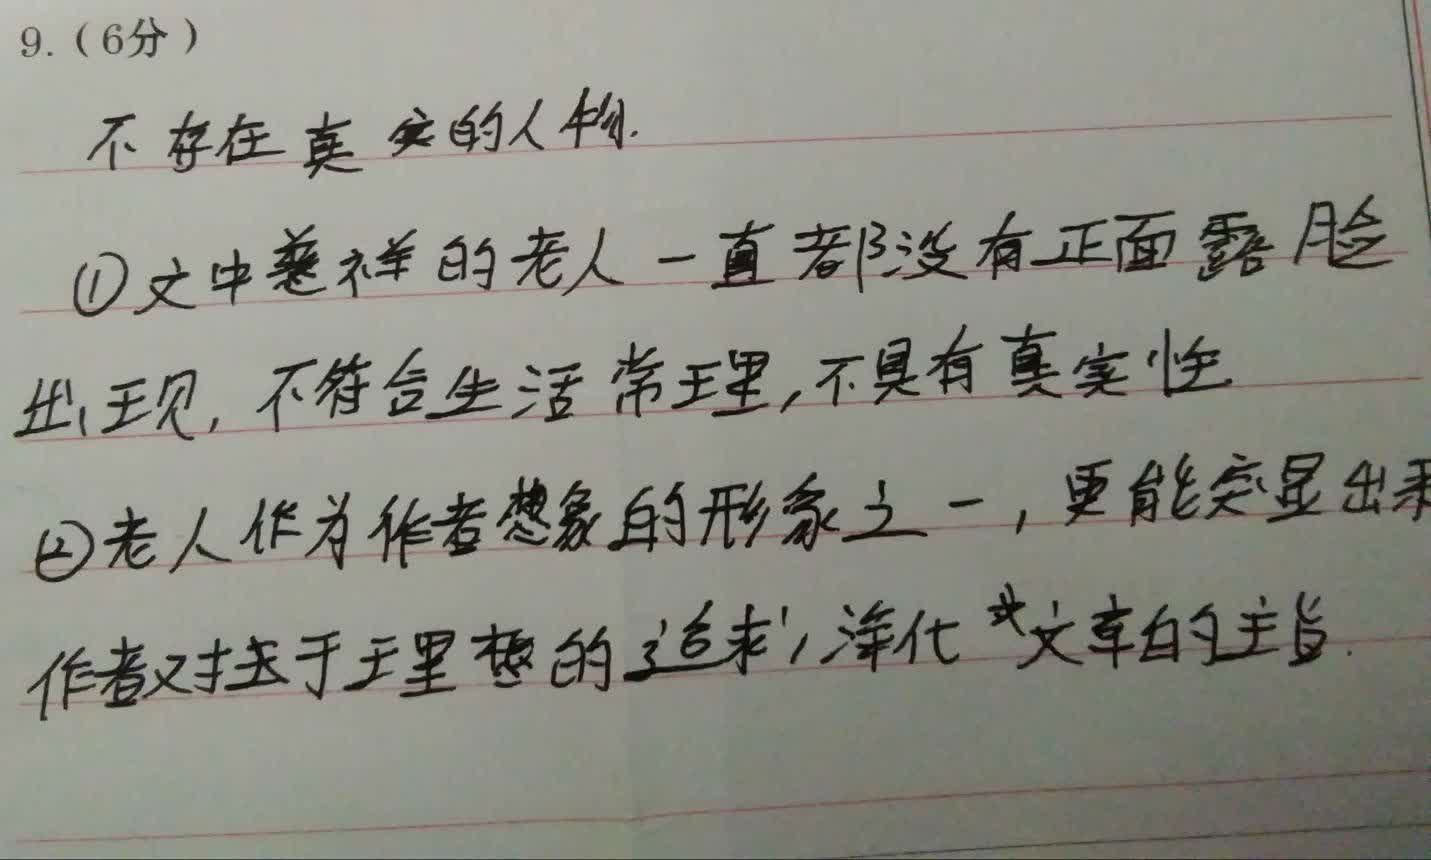 9.（6分）
不存在真实的人物.
①文中慈祥的老人一直都没有正面露脸
出现,不符合生活常理,不具有真实性
②老人作为作者想象的形象之一,更能突显出来
作者对于理想的追求,深化文章的主旨.